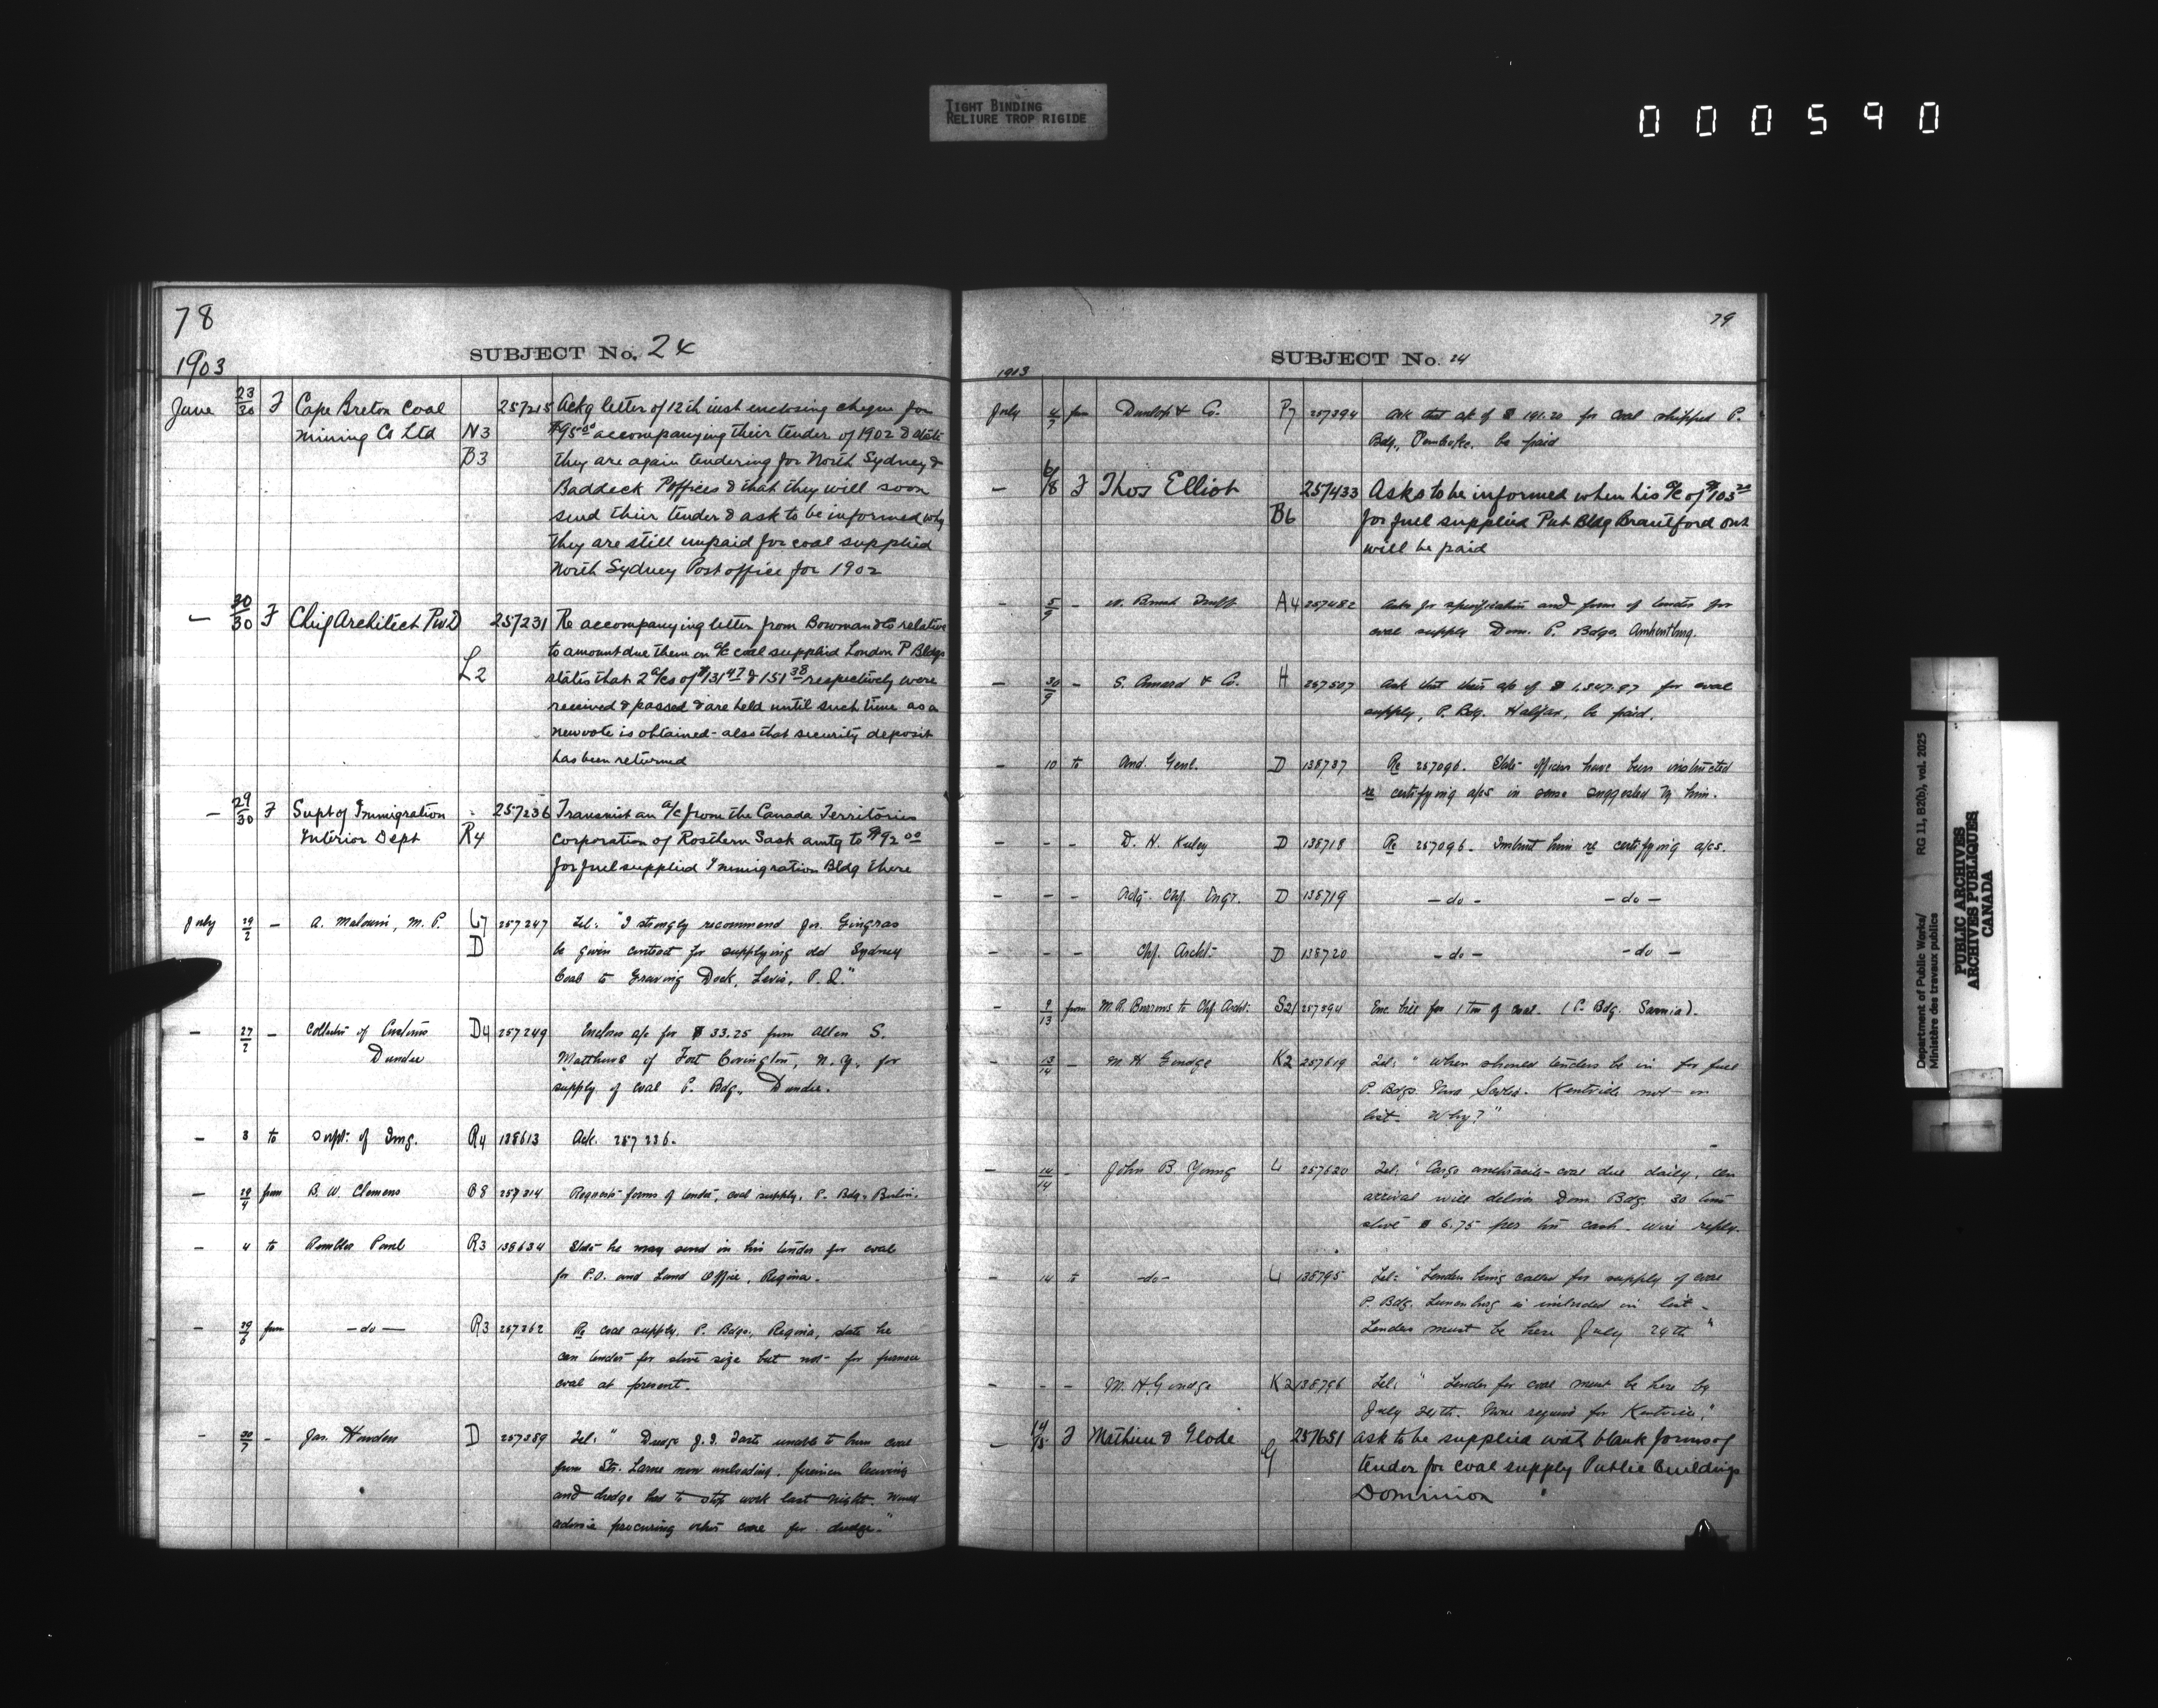 TIGHT BINDING
RELIURE TROP RIGIDE
000590
78
SUBJECT No. 24
1903
June 23/30 F Cape Breton Coal 257215 Ackg letter of 12th inst enclosing cheque for
Mining Co Ltd N3 $95.00 accompanying their tender of 1902 & state
B3 they are again tendering for North Sydney &
Baddeck P offices & that they will soon
send their tender & ask to be informed why
they are still unpaid for coal supplied
North Sydney Post office for 1902
— 30/30 F Chief Architect PWD 257231 Re accompanying letter from Bowman & Co relative
to amount due them on a/c coal supplied London P Bldgs
L2 states that 2 a/cs of $131.47 & 151.38 respectively were
received & passed & are held until such time as a
new vote is obtained - also that security deposit
has been returned
— 29/30 F Supt of Immigration 257236 Transmit an a/c from the Canada Territories
Interior Dept R4 Corporation of Rosthern Sask amtg to $92.00
for fuel supplied Immigration Bldg there
July 29/2 — A. Malouin, M. P. L7 257247 Tel: "I strongly recommend Jos. Gingras
D be given contract for supplying old Sydney
Coal to Graving Dock, Levis, P.Q."
— 27/2 — Collector of Customs D4 257249 Encloses a/c for $33.25 from Allen S.
Dundee Matthews of Fort Covington, N.Y. for
supply of coal P. Bdg., Dundee.
— 3 to Supt. of Img. R4 138613 Ack. 257236.
— 29/4 from B. W. Clemens B8 257314 Requests forms of tender, coal supply, P. Bdg. Berlin.
— 4 to Rambler Paul R3 138634 State he may send in his tender for coal
for P.O. and Land Office, Regina.
— 29/6 from — do — R3 257362 Re coal supply, P. Bdgs., Regina, state he
can tender for stove size but not for furnace
coal at present.
- 30/7 - Jas. Howden D 257389 Tel: " Dredge J. I. Tarte unable to burn coal
from Str. Larne now unloading, firemen leaving
and dredge had to stop work last night. Would
advise procuring other coal for dredge."
79
SUBJECT No. 24
1903
July 4/7 from Dunlop & Co. P7 257394 Ask that a/c of $191.20 for coal shipped P.
Bdg., Pembroke, be paid
— 6/8 F Thos Elliot 257433 Asks to be informed when his a/c of $103.20
B6 for fuel supplied Pub Bldg Brantford Ont
will be paid
- 5/9 - A4 257482 Asks for specification and form of tender for
coal supply Dom. P. Bdgs. Amherstburg.
— 30/9 - S. Cunard & Co. H 257507 Ask that their a/c of $1,347.97 for coal
supply, P. Bdg. Halifax, be paid.
- 10 to Aud. Genl. D 138737 Re 257096. State officers have been instructed
re certifying a/cs in sense suggested by him.
- - - D. H. Kuley D 138718 Re 257096. Instruct him re certifying a/cs.
- - - Actg. Chf. Engr. D 138719 - do - - do -
- - - Chf. Archt. D 138720 - do - - do -
- 9/13 from M. P. Burrows to Chf. Archt. S21 257594 Enc. bill for 1 ton of coal. (P. Bdg. Sarnia).
- 13/14 - M. H. Goudge K2 257619 Tel: " When should tenders be in for fuel
P. Bdgs. Nova Scotia. Kentville not in
list. Why?"
— 14/14 - John B. Young L 257620 Tel: " Cargo anthracite coal due daily, on
arrival will deliver Dom. Bdg. 30 tons
stove $6.75 per ton cash. Wire reply.
- 14 to -do- L 138795 Tel: " Tenders being called for supply of coal
P. Bdg. Lunenburg is included in list -
Tenders must be here July 24th "
- - - M. H. Goudge K2 138796 Tel: " Tender for coal must be here by
July 24th. None required for Kentville."
— 14/15 F Mathieu & Glode G 257651 ask to be supplied with blank forms of
tender for coal supply Public Buildings
Dominion
Department of Public Works/
Ministère des travaux publics
RG 11, B2(b), vol. 2025
PUBLIC ARCHIVES
ARCHIVES PUBLIQUES
CANADA